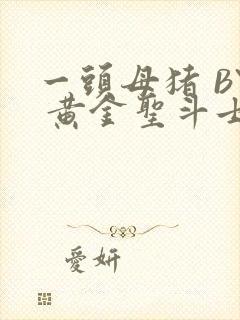 一頭母猪 BY
黄金聖斗士
愛妍